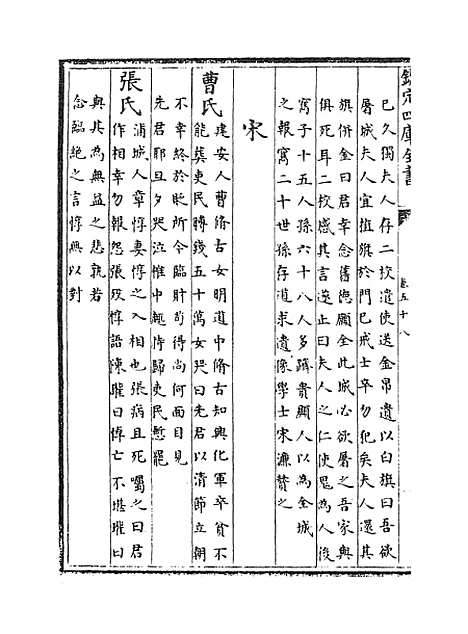 欽定四庫全書
卷五十八
已久獨夫人存二校遣使送金帛遺以白旗曰吾欲
屠城夫人宜植旗於門已戒士卒勿犯矣夫人還其
旗併金曰君幸念舊徳願全此城必欲屠之吾家與
俱死耳二校感其言遂止曰夫人之仁使冤為人後
寓子十五人孫六十八人多躋貴顯人以為全城
之報寓二十世孫存道求遺像學士宋濂贊之
宋
曹氏 建安人曹脩古女明道中脩古知興化軍卒貧不
能葬吏民賻錢五十萬女哭曰先君以清節立朝
不幸終於貶所今臨財苟得尚何面目見
先君耶旦夕哭泣惟中輙侍歸吏民慙罷
張氏 浦城人章惇妻惇之入相也張病且死囑之曰君
作相幸勿報怨張歿惇語陳瓘曰悼亡不堪瓘曰
與其為無益之悲孰若
念臨絶之言惇無以對